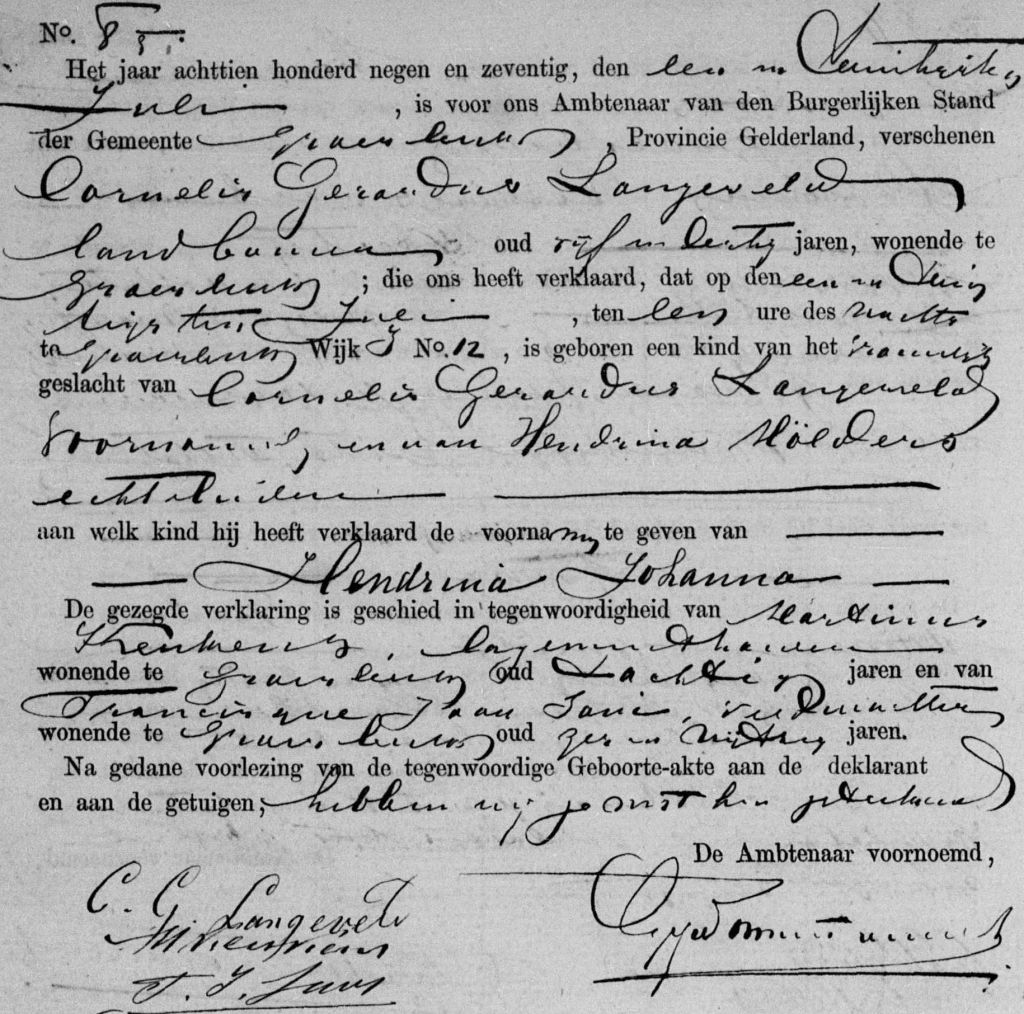 No. 85.
Het jaar achttien honderd negen en zeventig, den een en twintigsten
Juli, is voor ons Ambtenaar van den Burgerlijken Stand
der Gemeente Groesbeek, Provincie Gelderland, verschenen
Cornelis Gerardus Langeveld
landbouwer oud vijf en dertig jaren, wonende te
Groesbeek; die ons heeft verklaard, dat op den een en twin
tigsten Juli, ten een ure des nachts
te Groesbeek Wijk J No. 12, is geboren een kind van het vrouwelijk
geslacht van Cornelis Gerardus Langeveld
voornoemd, en van Hendrina Hölders
echtelieden
aan welk kind hij heeft verklaard de voornamen te geven van
Hendrina Johanna
De gezegde verklaring is geschied in tegenwoordigheid van Martinus
wonende te Groesbeek oud tachtig jaren en van
wonende te Groesbeek oud zes en vijftig jaren.
Na gedane voorlezing van de tegenwoordige Geboorte-akte aan de deklarant
en aan de getuigen, hebben wij ze met hen geteekend
De Ambtenaar voornoemd,
C. G. Langeveld